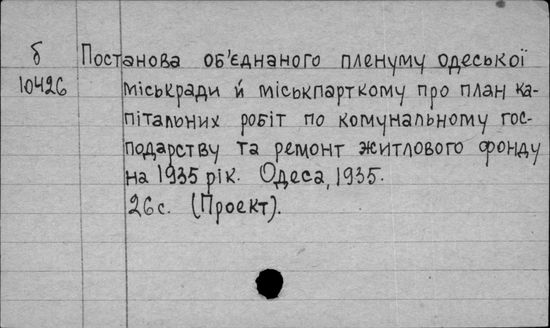 б Постанова об'єднаного пленуму одеської
10426 міськради й міськпарткому про план ка-
пітальних робіт по комунальному гос-
подарству та ремонт житлового фонду
на 1935 рік. Одеса, 1935.
26 с. (Проект).